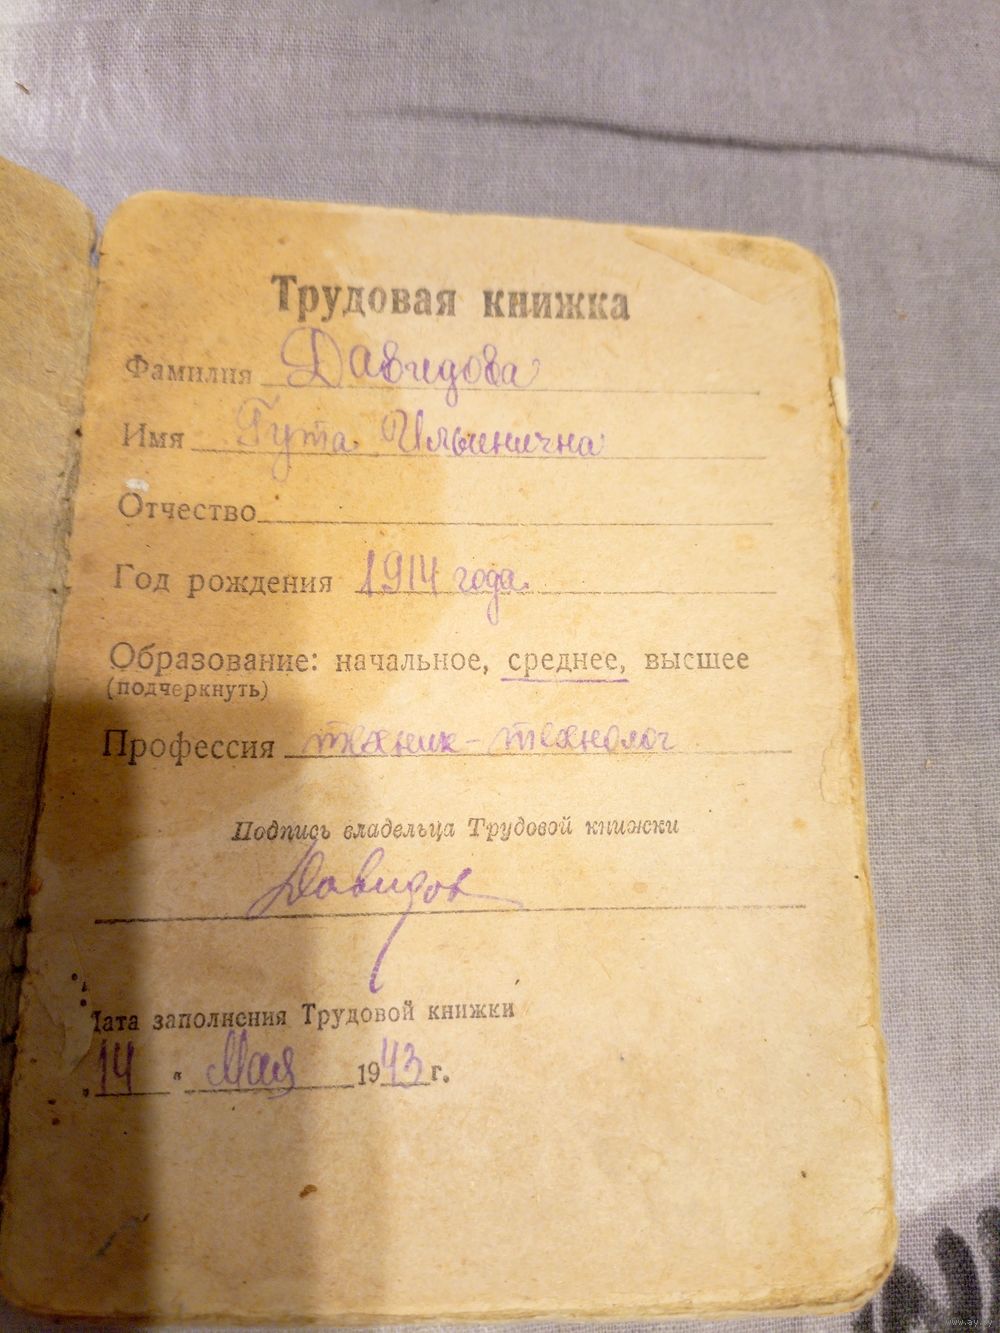 Трудовая книжка
Фамилия Давидова
Имя Гута Ильинична
Отчество
Год рождения 1914 года.
Образование: начальное, среднее, высшее
(подчеркнуть)
Профессия техник-технолог
Подпись владельца Трудовой книжки
Давидов
Дата заполнения Трудовой книжки
„14 “ Мая 1943 г.